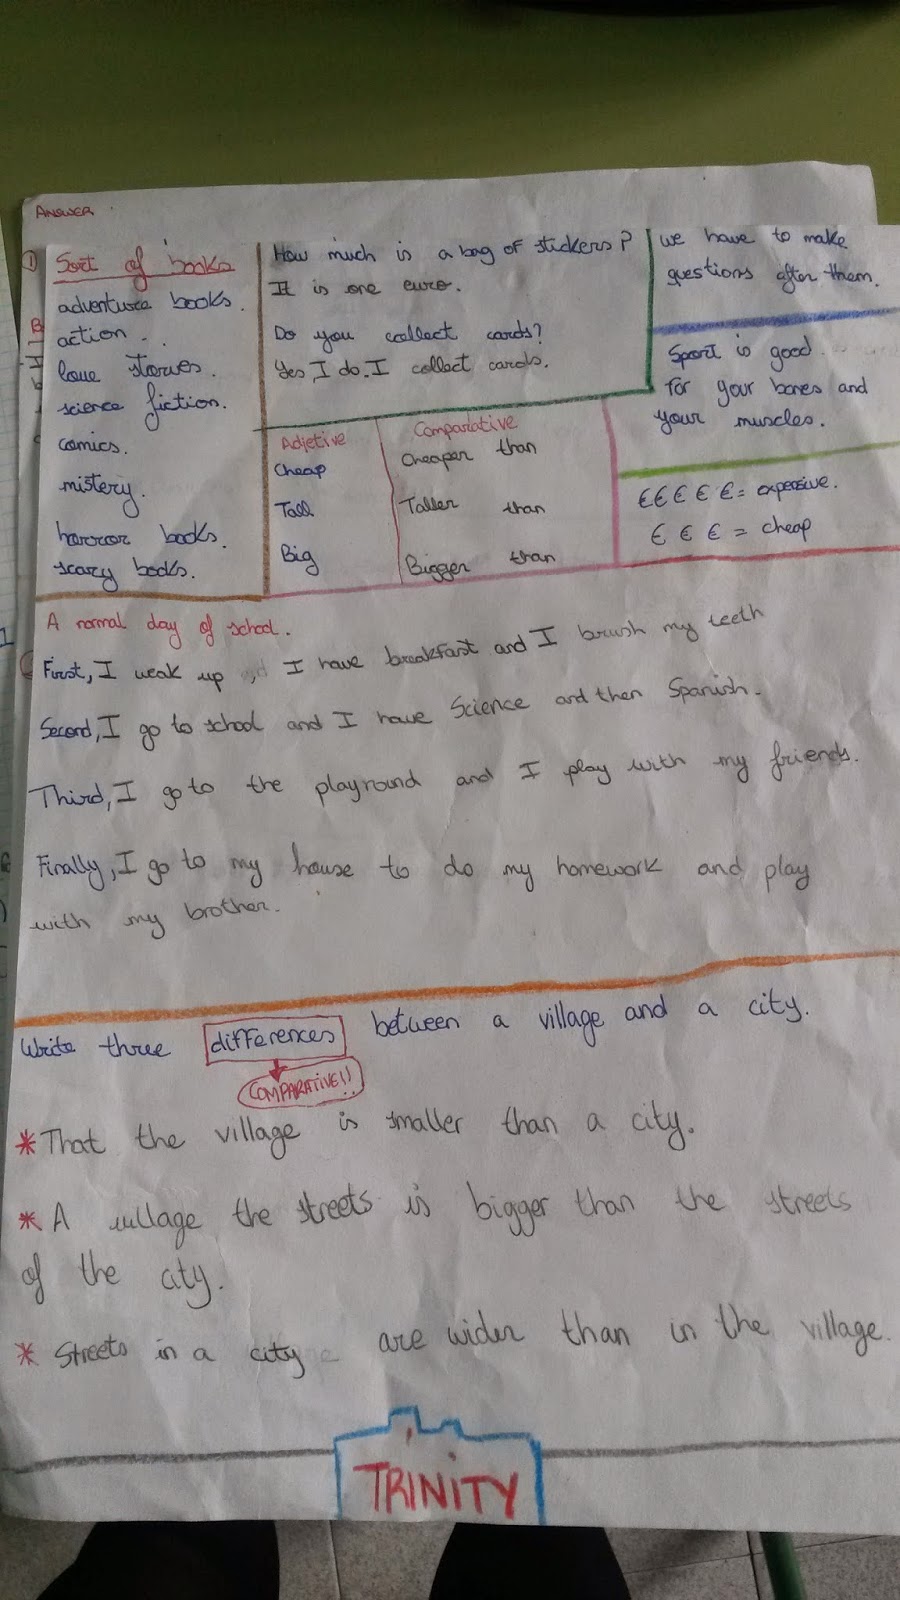 ANSWER
1
Sort of books
adventure books.
action
love stories.
science fiction.
comics.
mistery.
horror books.
scary books.
How much is a bag of stickers?
It is one euro.
Do you collect cards?
Yes, I do. I collect cards.
we have to make
questions after them.
Sport is good
for your bones and
your muscles.
Adjetive Comparative
Cheap Cheaper than
Tall Taller than
Big Bigger than
€€€€€ = expensive.
€€€ = cheap
A normal day of school.
First, I weak up I have breakfast and I brush my teeth
Second, I go to school and I have Science and then Spanish.
Third, I go to the playround and I play with my friends.
Finally, I go to my house to do my homework and play
with my brother.
Write three differences between a village and a city.
COMPARATIVE!!
* That the village is smaller than a city.
* A village the streets is bigger than the streets
of the city.
* Streets in a city are wider than in the village.
TRINITY